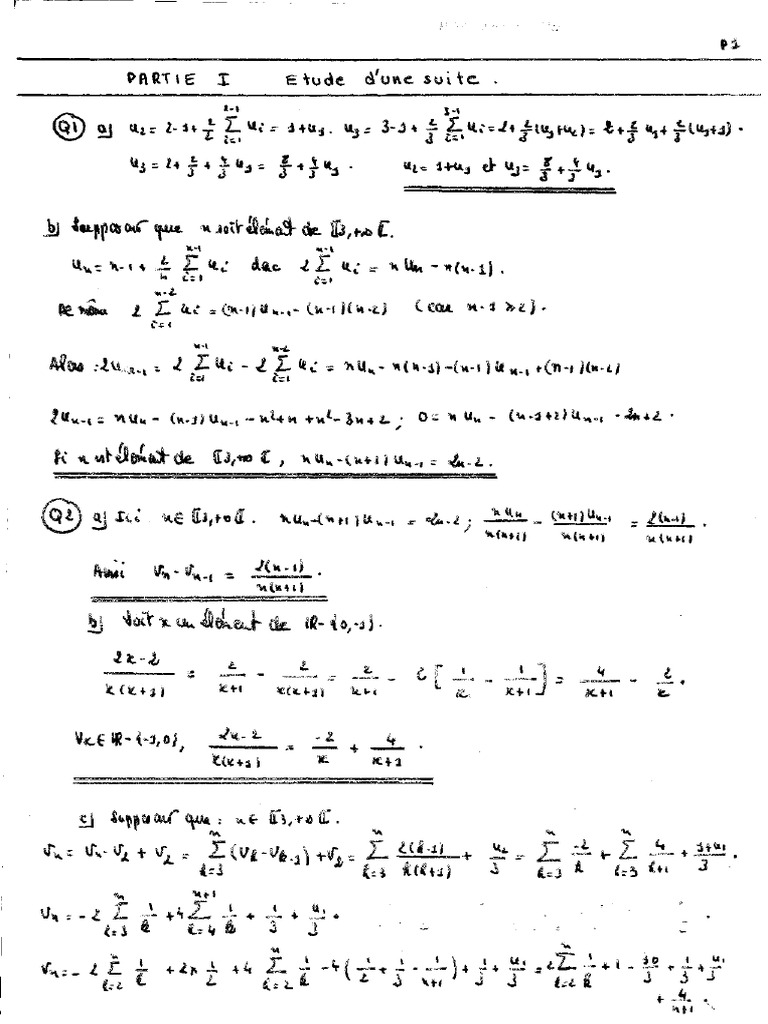 P1
PARTIE I Etude d'une suite.
Q1 a) u₂ = 2-1+\frac{2}{2} \sum_{i=1}^{2-1} u_i = 1+u₁. u₃ = 3-1+\frac{2}{3} \sum_{i=1}^{3-1} u_i = 2+\frac{2}{3}(u₁+u₂) = 2+\frac{2}{3}u₁+\frac{2}{3}(u₁+1).
u₃ = 2+\frac{2}{3}+\frac{4}{3}u₁ = \frac{8}{3}+\frac{4}{3}u₁. u₂ = 1+u₁ et u₃ = \frac{8}{3}+\frac{4}{3}u₁.
b) Supposons que n soit élément de ⟦3,+∞⟦.
u_n = n-1+\frac{2}{n} \sum_{i=1}^{n-1} u_i donc 2 \sum_{i=1}^{n-1} u_i = n u_n - n(n-1).
De même 2 \sum_{i=1}^{n-2} u_i = (n-1)u_{n-1} - (n-1)(n-2) (car n-1 ⩾ 2).
Alors : 2u_{n-1} = 2 \sum_{i=1}^{n-1} u_i - 2 \sum_{i=1}^{n-2} u_i = n u_n - n(n-1) - (n-1)u_{n-1} + (n-1)(n-2)
2u_{n-1} = n u_n - (n-1)u_{n-1} - n²+n+n²-3n+2 ; 0 = n u_n - (n-1+2)u_{n-1} - 2n+2.
Si n est élément de ⟦3,+∞⟦, n u_n - (n+1)u_{n-1} = 2n-2.
Q2 a) Ici n ∈ ⟦3,+∞⟦. n u_n - (n+1)u_{n-1} = 2n-2 ; \frac{n u_n}{n(n+1)} - \frac{(n+1)u_{n-1}}{n(n+1)} = \frac{2(n-1)}{n(n+1)}.
Ainsi v_n - v_{n-1} = \frac{2(n-1)}{n(n+1)}.
b) Soit x un élément de ℝ-{0,-1}.
\frac{2x-2}{x(x+1)} = \frac{2}{x+1} - \frac{2}{x(x+1)} = \frac{2}{x+1} - 2[\frac{1}{x} - \frac{1}{x+1}] = \frac{4}{x+1} - \frac{2}{x}.
∀x ∈ ℝ-{-1,0}, \frac{2x-2}{x(x+1)} = \frac{-2}{x} + \frac{4}{x+1}.
c) Supposons que : n ∈ ⟦3,+∞⟦.
v_n = v_n - v_2 + v_2 = \sum_{k=3}^{n} (v_k - v_{k-1}) + v_2 = \sum_{k=3}^{n} \frac{2(k-1)}{k(k+1)} + \frac{u_2}{3} = \sum_{k=3}^{n} \frac{-2}{k} + \sum_{k=3}^{n} \frac{4}{k+1} + \frac{1+u_1}{3}.
v_n = -2 \sum_{k=3}^{n} \frac{1}{k} + 4 \sum_{k=4}^{n+1} \frac{1}{k} + \frac{1}{3} + \frac{u_1}{3}.
v_n = -2 \sum_{k=2}^{n} \frac{1}{k} + 2×\frac{1}{2} + 4 \sum_{k=2}^{n} \frac{1}{k} - 4(\frac{1}{2}+\frac{1}{3}-\frac{1}{n+1}) + \frac{1}{3} + \frac{u_1}{3} = 2 \sum_{k=2}^{n} \frac{1}{k} + 1 - \frac{10}{3} + \frac{1}{3} + \frac{u_1}{3}
+ \frac{4}{n+1}.